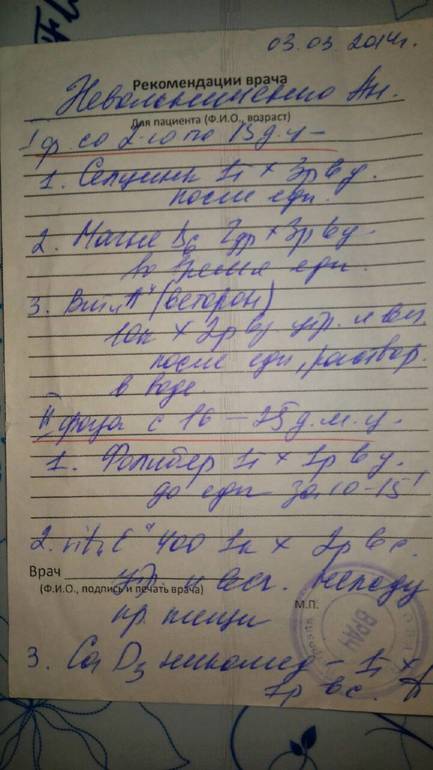 03.03.2014г.
Рекомендации врача
Ан.
Для пациента (Ф.И.О., возраст)
I ф. со 2-го по 15 д.ц –
1. Селцинк 1т × 3р в у.
после еды.
2. Магне B6 2др × 3р в у.
во время еды.
3. Вит „А" (веторон)
10к × 2р в у утр. и веч.
после еды, раствор.
в воде
II фаза с 16 – 25 д.м.ц.
1. Фолибер 1т × 1р в у.
до еды за 10-15'
2. vit „E" 400 1к × 2р в с.
Врач
утр. и веч.
(Ф.И.О., подпись и печать врача)
М.П.
пр. пищи
ВРАЧ
3. Ca D3 никомед – 1т ×
1р в с.